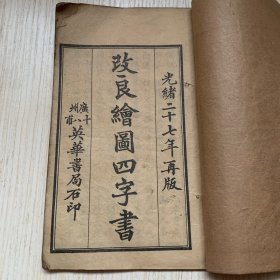 光緒二十七年再版
改良繪圖四字書
廣州十八甫英華書局石印